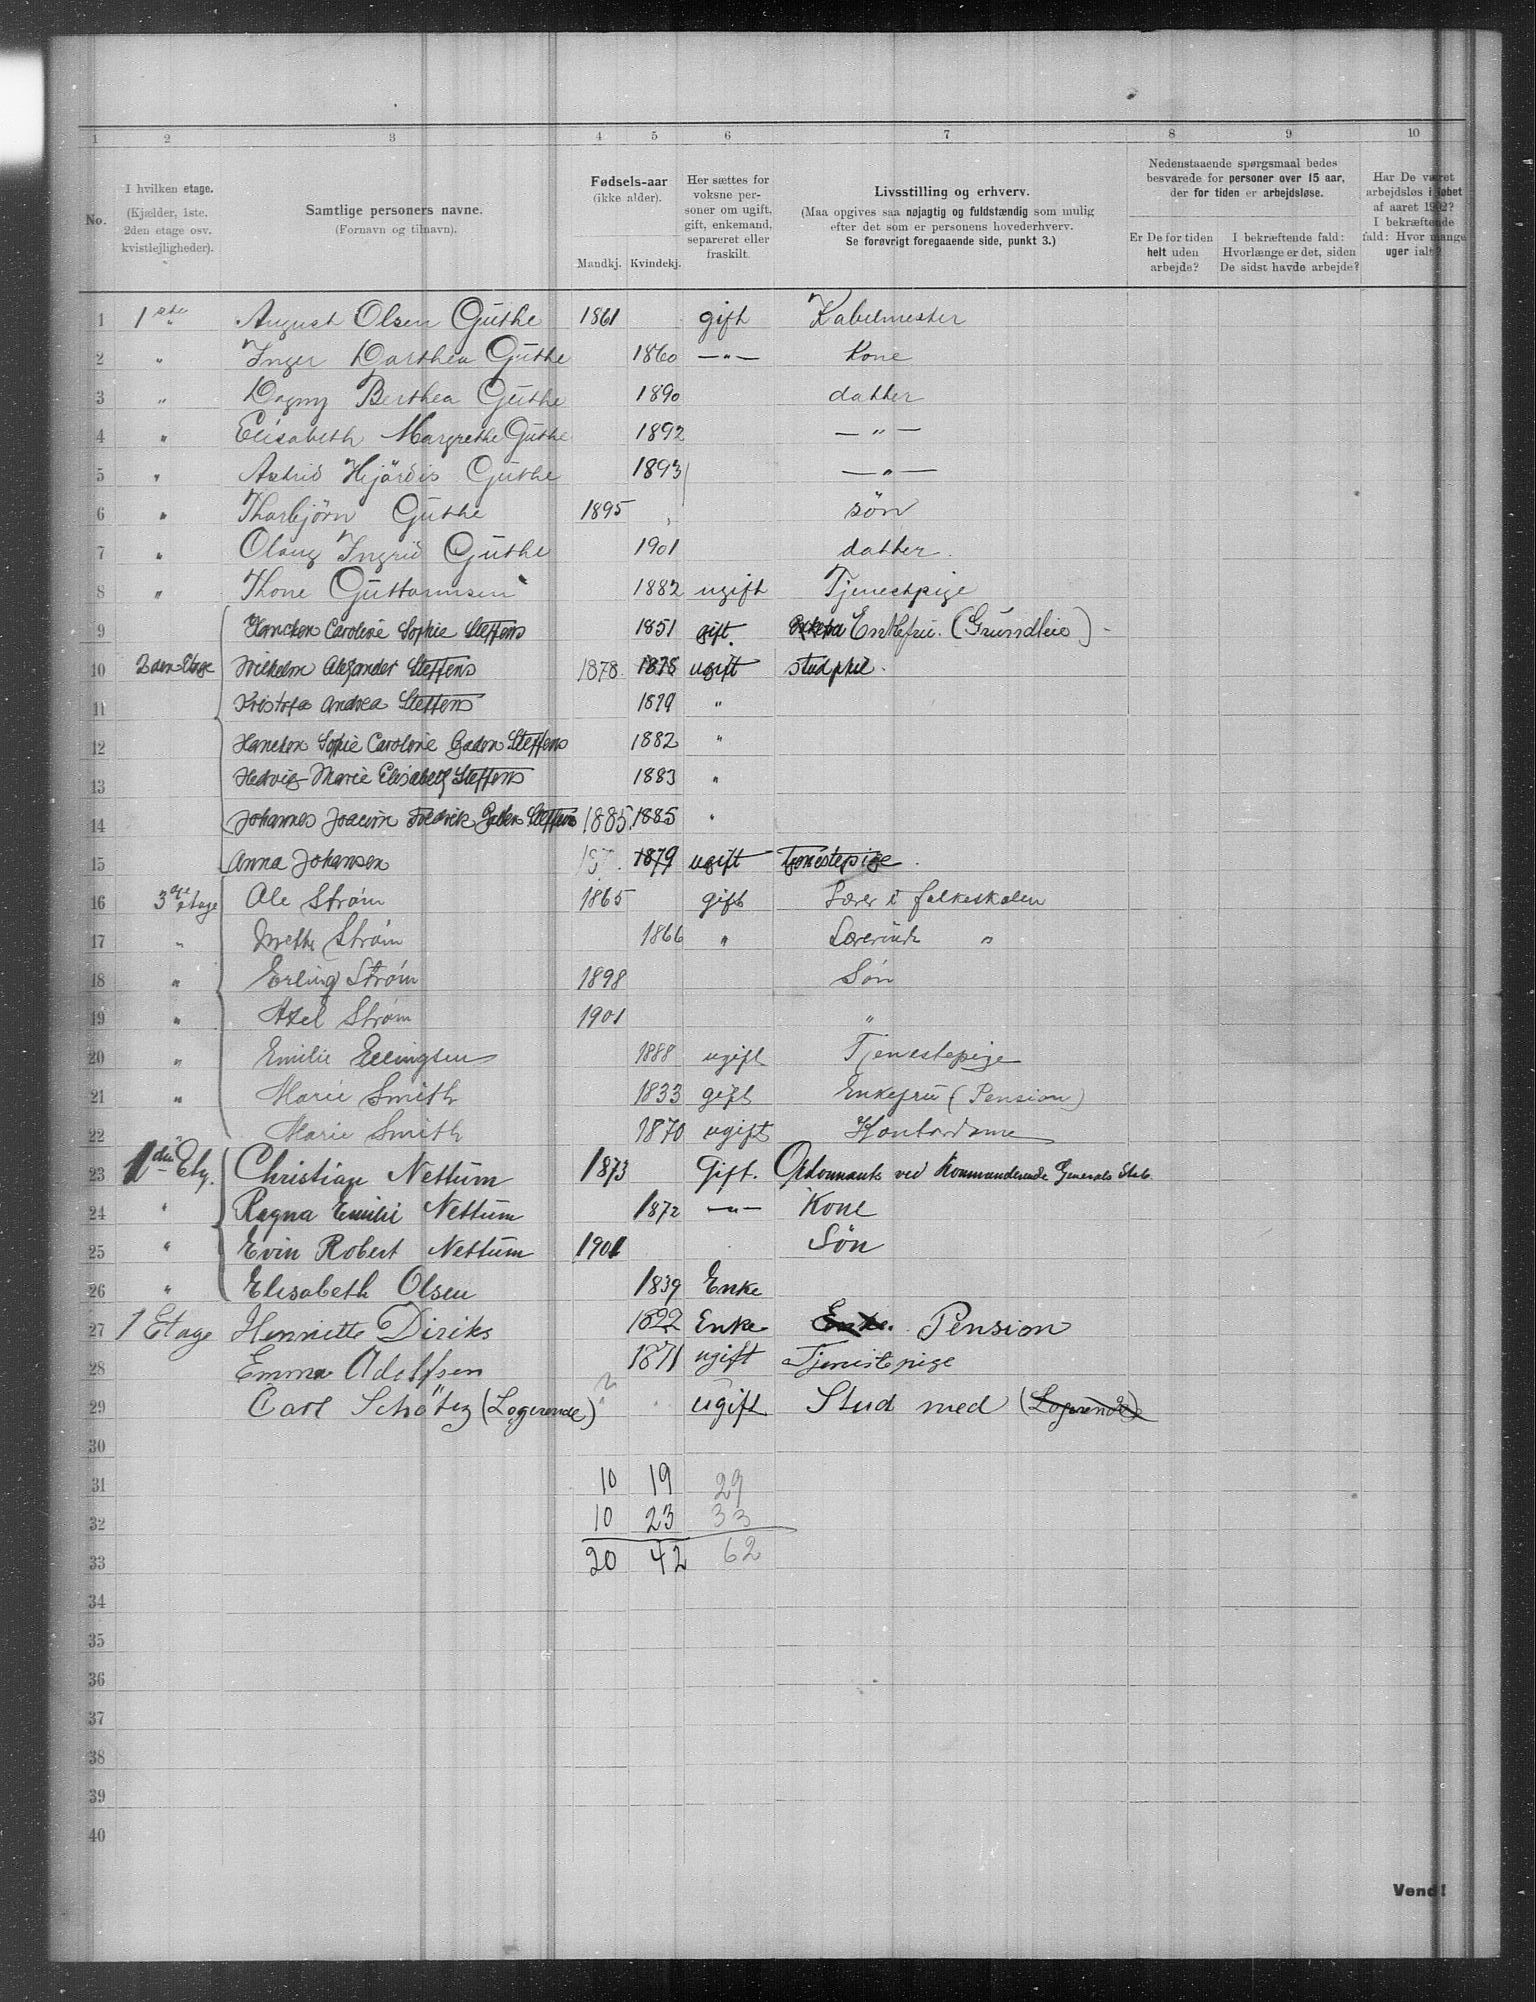 1 2 3 4 5 6 7 8 9 10
No.
I hvilken etage. (Kjælder, 1ste. 2den etage osv. kvistlejligheder).
Samtlige personers navne. (Fornavn og tilnavn).
Fødsels-aar (ikke alder). Mandkj. Kvindekj.
Her sættes for voksne personer om ugift, gift, enkemand, separeret eller fraskilt.
Livsstilling og erhverv. (Maa opgives saa nøjagtig og fuldstændig som mulig efter det som er personens hovederhverv. Se forøvrigt foregaaende side, punkt 3.)
Nedenstaaende spørgsmaal bedes besvarede for personer over 15 aar, der for tiden er arbejdsløse.
Er De for tiden helt uden arbejde?
I bekræftende fald: Hvorlænge er det, siden De sidst havde arbejde?
Har De været arbejdsløs i løbet af aaret 1902? I bekræftende fald: Hvor mange uger ialt?
1 1ste August Olsen Guthe 1861 gift Kabelmester
2 " Inger Dorthea Guthe 1860 —"— Kone
3 " Dagny Berthea Guthe 1890 datter
4 " Elisabeth Margrethe Guthe 1892 —"—
5 " Astrid Hjördis Guthe 1893 —"—
6 " Thorbjörn Guthe 1895 søn
7 " Olaug Ingrid Guthe 1901 datter
8 " Thone Guttormsen 1882 ugift Tjenestpige
9 Hanchen Caroline Sophie Steffens 1851 gift. Enkefru. (Grundleie)
10 2den Etage Wilhelm Alexander Steffens 1878 1878 ugift stud phil.
11 Andrea Steffens 1879 "
12 Hanchen Sophie Caroline Gaden Steffens 1882 "
13 Hedvig Marie Elisabeth Steffens 1883 "
14 Johannes Joachim Fredrik Gaden Steffens 1885 1885 "
15 Anna Johansen 1879 ugift tjenestepige.
16 3die etage Ole Strøm 1865 gift Lærer i folkeskolen
17 " Mette Strøm 1866 " Lærerinde "
18 " Erling Strøm 1898 Søn
19 " Axel Strøm 1901 "
20 " Emilie Ellingsen 1888 ugift Tjenestepige
21 " Marie Smith 1833 gift Enkefru (Pension)
22 Marie Smith 1870 ugift Kontordame
23 1den Etg. Christian Nettum 1873 Gift. Ordonnants ved Kommanderende Generals Stab.
24 " Ragna Emilie Nettum 1872 —"— Kone
25 " Evin Robert Nettum 1901 Søn
26 " Elisabeth Olsen 1839 Enke
27 1 Etage Henriette Diriks 1822 Enke Enke. Pension
28 Emma Adolfsen 1871 ugift Tjenistepige
29 Carl Schøtz (Logerende) ? ugift Stud med (Logerende)
30
31 10 19 29
32 10 23 33
33 20 42 62
34
35
36
37
38
39
40
Vend!